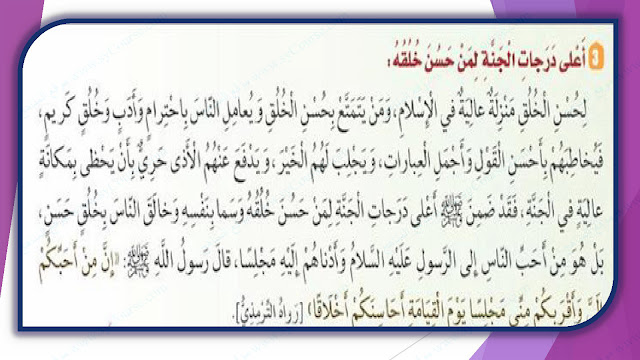 3 أَعْلى دَرَجاتِ الْجَنَّةِ لِمَنْ حَسُنَ خُلُقُهُ:
لِحُسْنِ الْخُلُقِ مَنْزِلَةٌ عالِيَةٌ في الْإِسْلامِ، وَمَنْ يَتَمَتَّعْ بِحُسْنِ الْخُلُقِ وَيُعامِلِ النّاسَ بِاحْتِرامٍ وَأَدَبٍ وَخُلُقٍ كَريمٍ،
فَيُخاطِبُهُمْ بِأَحْسَنِ الْقَوْلِ وَأَجْمَلِ الْعِباراتِ، وَيَجْلِبَ لَهُمُ الْخَيْرَ، وَيَدْفَعَ عَنْهُمُ الْأَذى حَرِيٌّ بِأَنْ يَحْظى بِمَكانَةٍ
عالِيَةٍ في الْجَنَّةِ، فَقَدْ ضَمِنَ ﷺ أَعْلى دَرَجاتِ الْجَنَّةِ لِمَنْ حَسُنَ خُلُقُهُ وَسَما بِنَفْسِهِ وَخالَقَ النّاسَ بِخُلُقٍ حَسَنٍ،
بَلْ هُوَ مِنْ أَحَبِّ النّاسِ إِلى الرَّسولِ عَلَيْهِ السَّلامُ وَأَدْناهُمْ إِلَيْهِ مَجْلِسًا، قالَ رَسولُ اللَّهِ ﷺ: «إِنَّ مِنْ أَحَبِّكُمْ
إِلَيَّ وَأَقْرَبِكُمْ مِنِّي مَجْلِسًا يَوْمَ الْقِيامَةِ أَحاسِنَكُمْ أَخْلاقًا» [رَواهُ التِّرْمِذِيُّ].